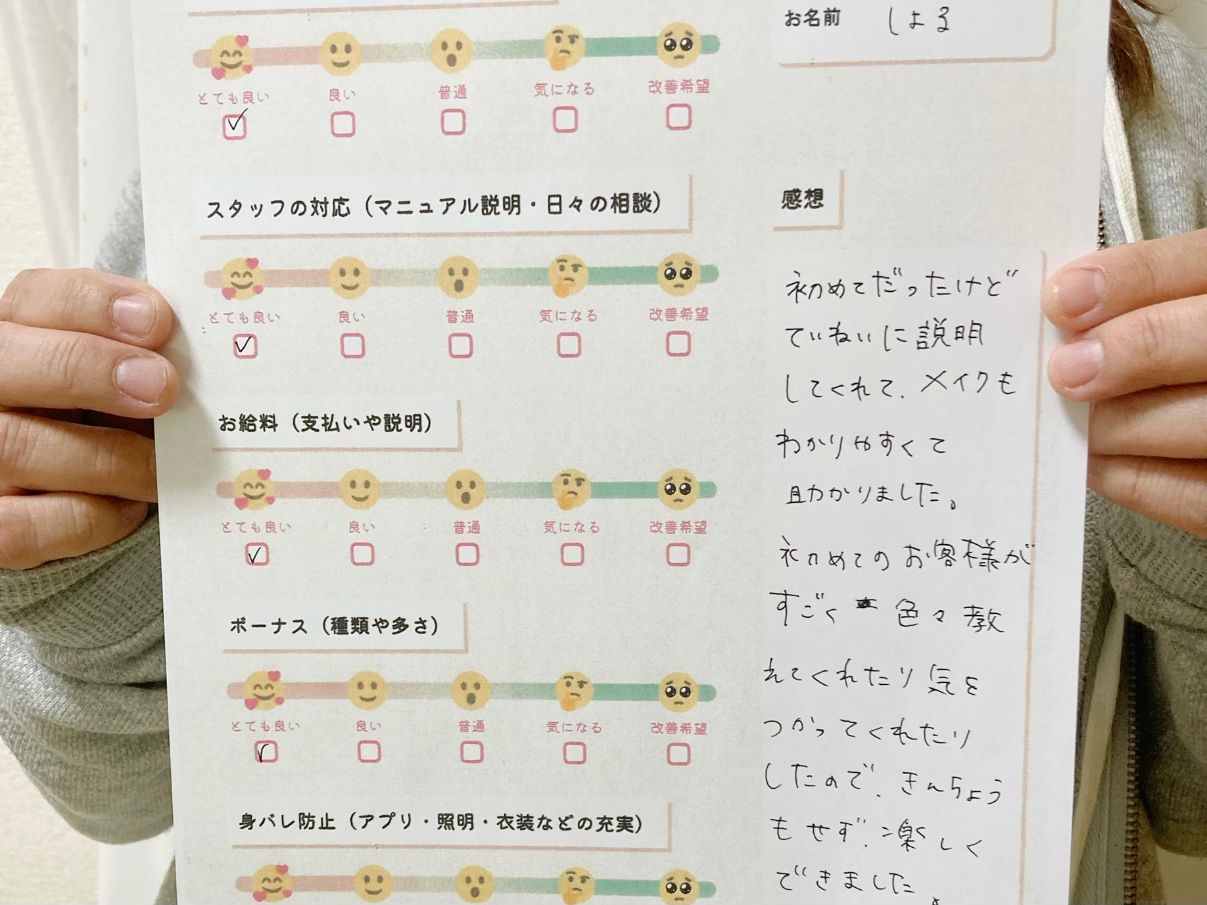 とても良い 良い 普通 気になる 改善希望
スタッフの対応（マニュアル説明・日々の相談）
とても良い 良い 普通 気になる 改善希望
お給料（支払いや説明）
とても良い 良い 普通 気になる 改善希望
ボーナス（種類や多さ）
とても良い 良い 普通 気になる 改善希望
身バレ防止（アプリ・照明・衣装などの充実）
お名前 しよる
感想
初めてだったけど
ていねいに説明
してくれて、メイクも
わかりやすくて
助かりました。
初めてのお客様が
すごく 色々教
えてくれたり気を
つかってくれたり
したので、きんちょう
もせず、楽しく
できました。